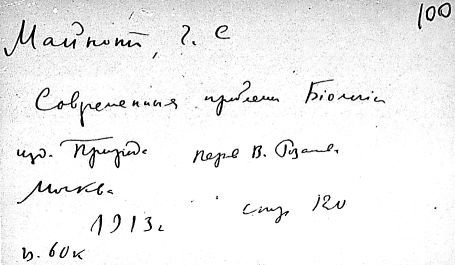 100
Майнот, Г. С
Современныя проблемы Біологіи
изд. Природа перев В. Розанова
Москва
1913 г стр 120
ц. 60 к